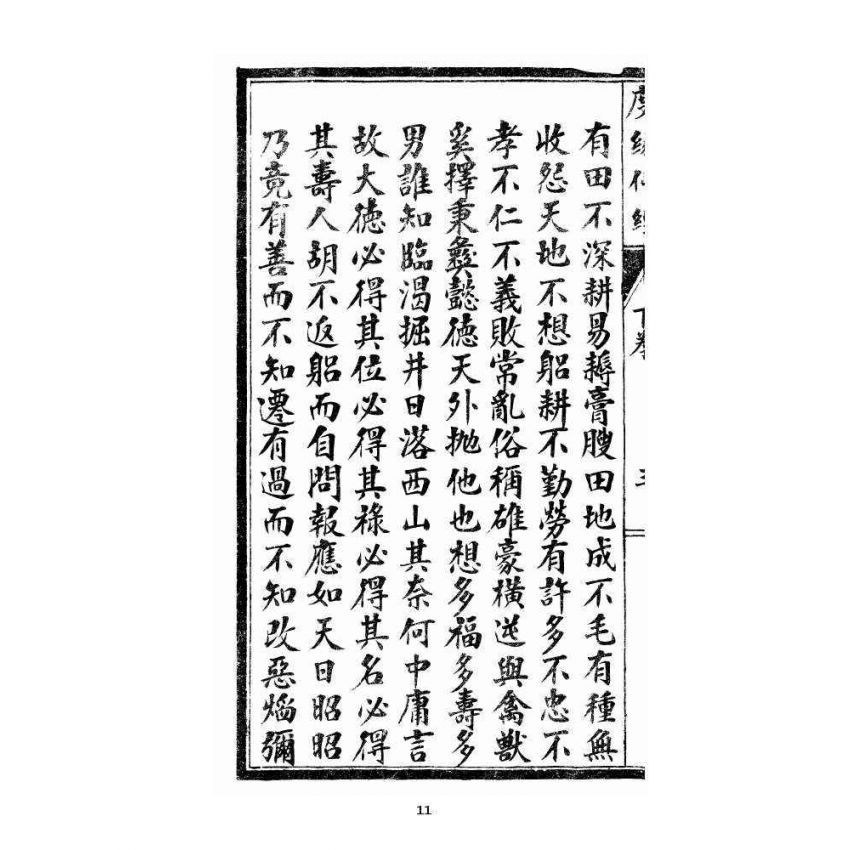 有田不深耕易耨膏腴田地成不毛有種無
收怨天地不想躬耕不勤勞有許多不忠不
孝不仁不義敗常亂俗稱雄豪橫逆與禽獸
奚擇秉彝懿德天外拋他也想多福多壽多
男誰知臨渴掘井日落西山其奈何中庸言
故大德必得其位必得其祿必得其名必得
其壽人胡不返躬而自問報應如天日昭昭
乃竟有善而不知遷有過而不知改惡燄彌
11